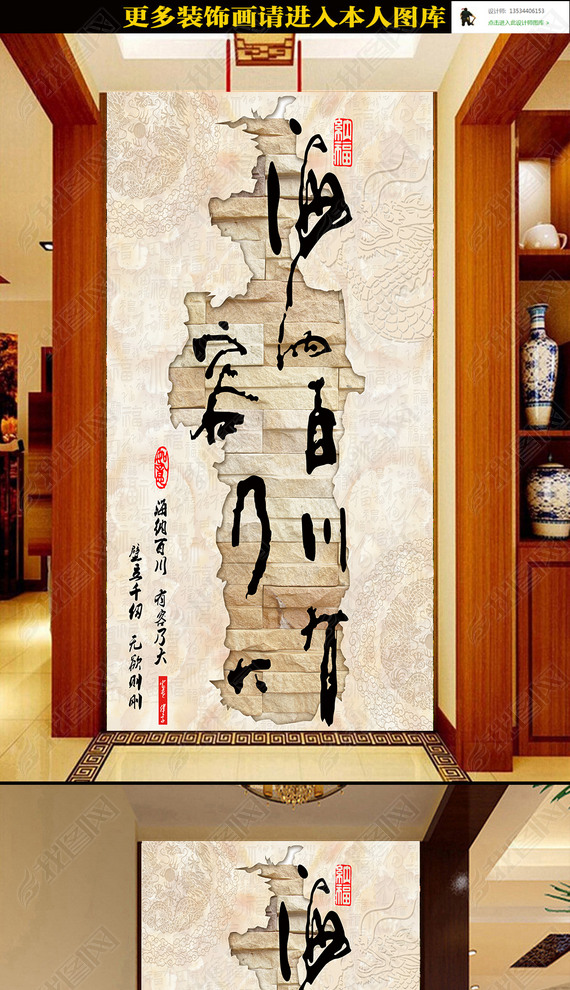 更多装饰画请进入本人图库
设计师: 13534406153
点击进入此设计师图库 >
纳福
海纳百川有
容乃大
如意
海纳百川 有容乃大
壁立千仞 无欲则刚
纳福
海